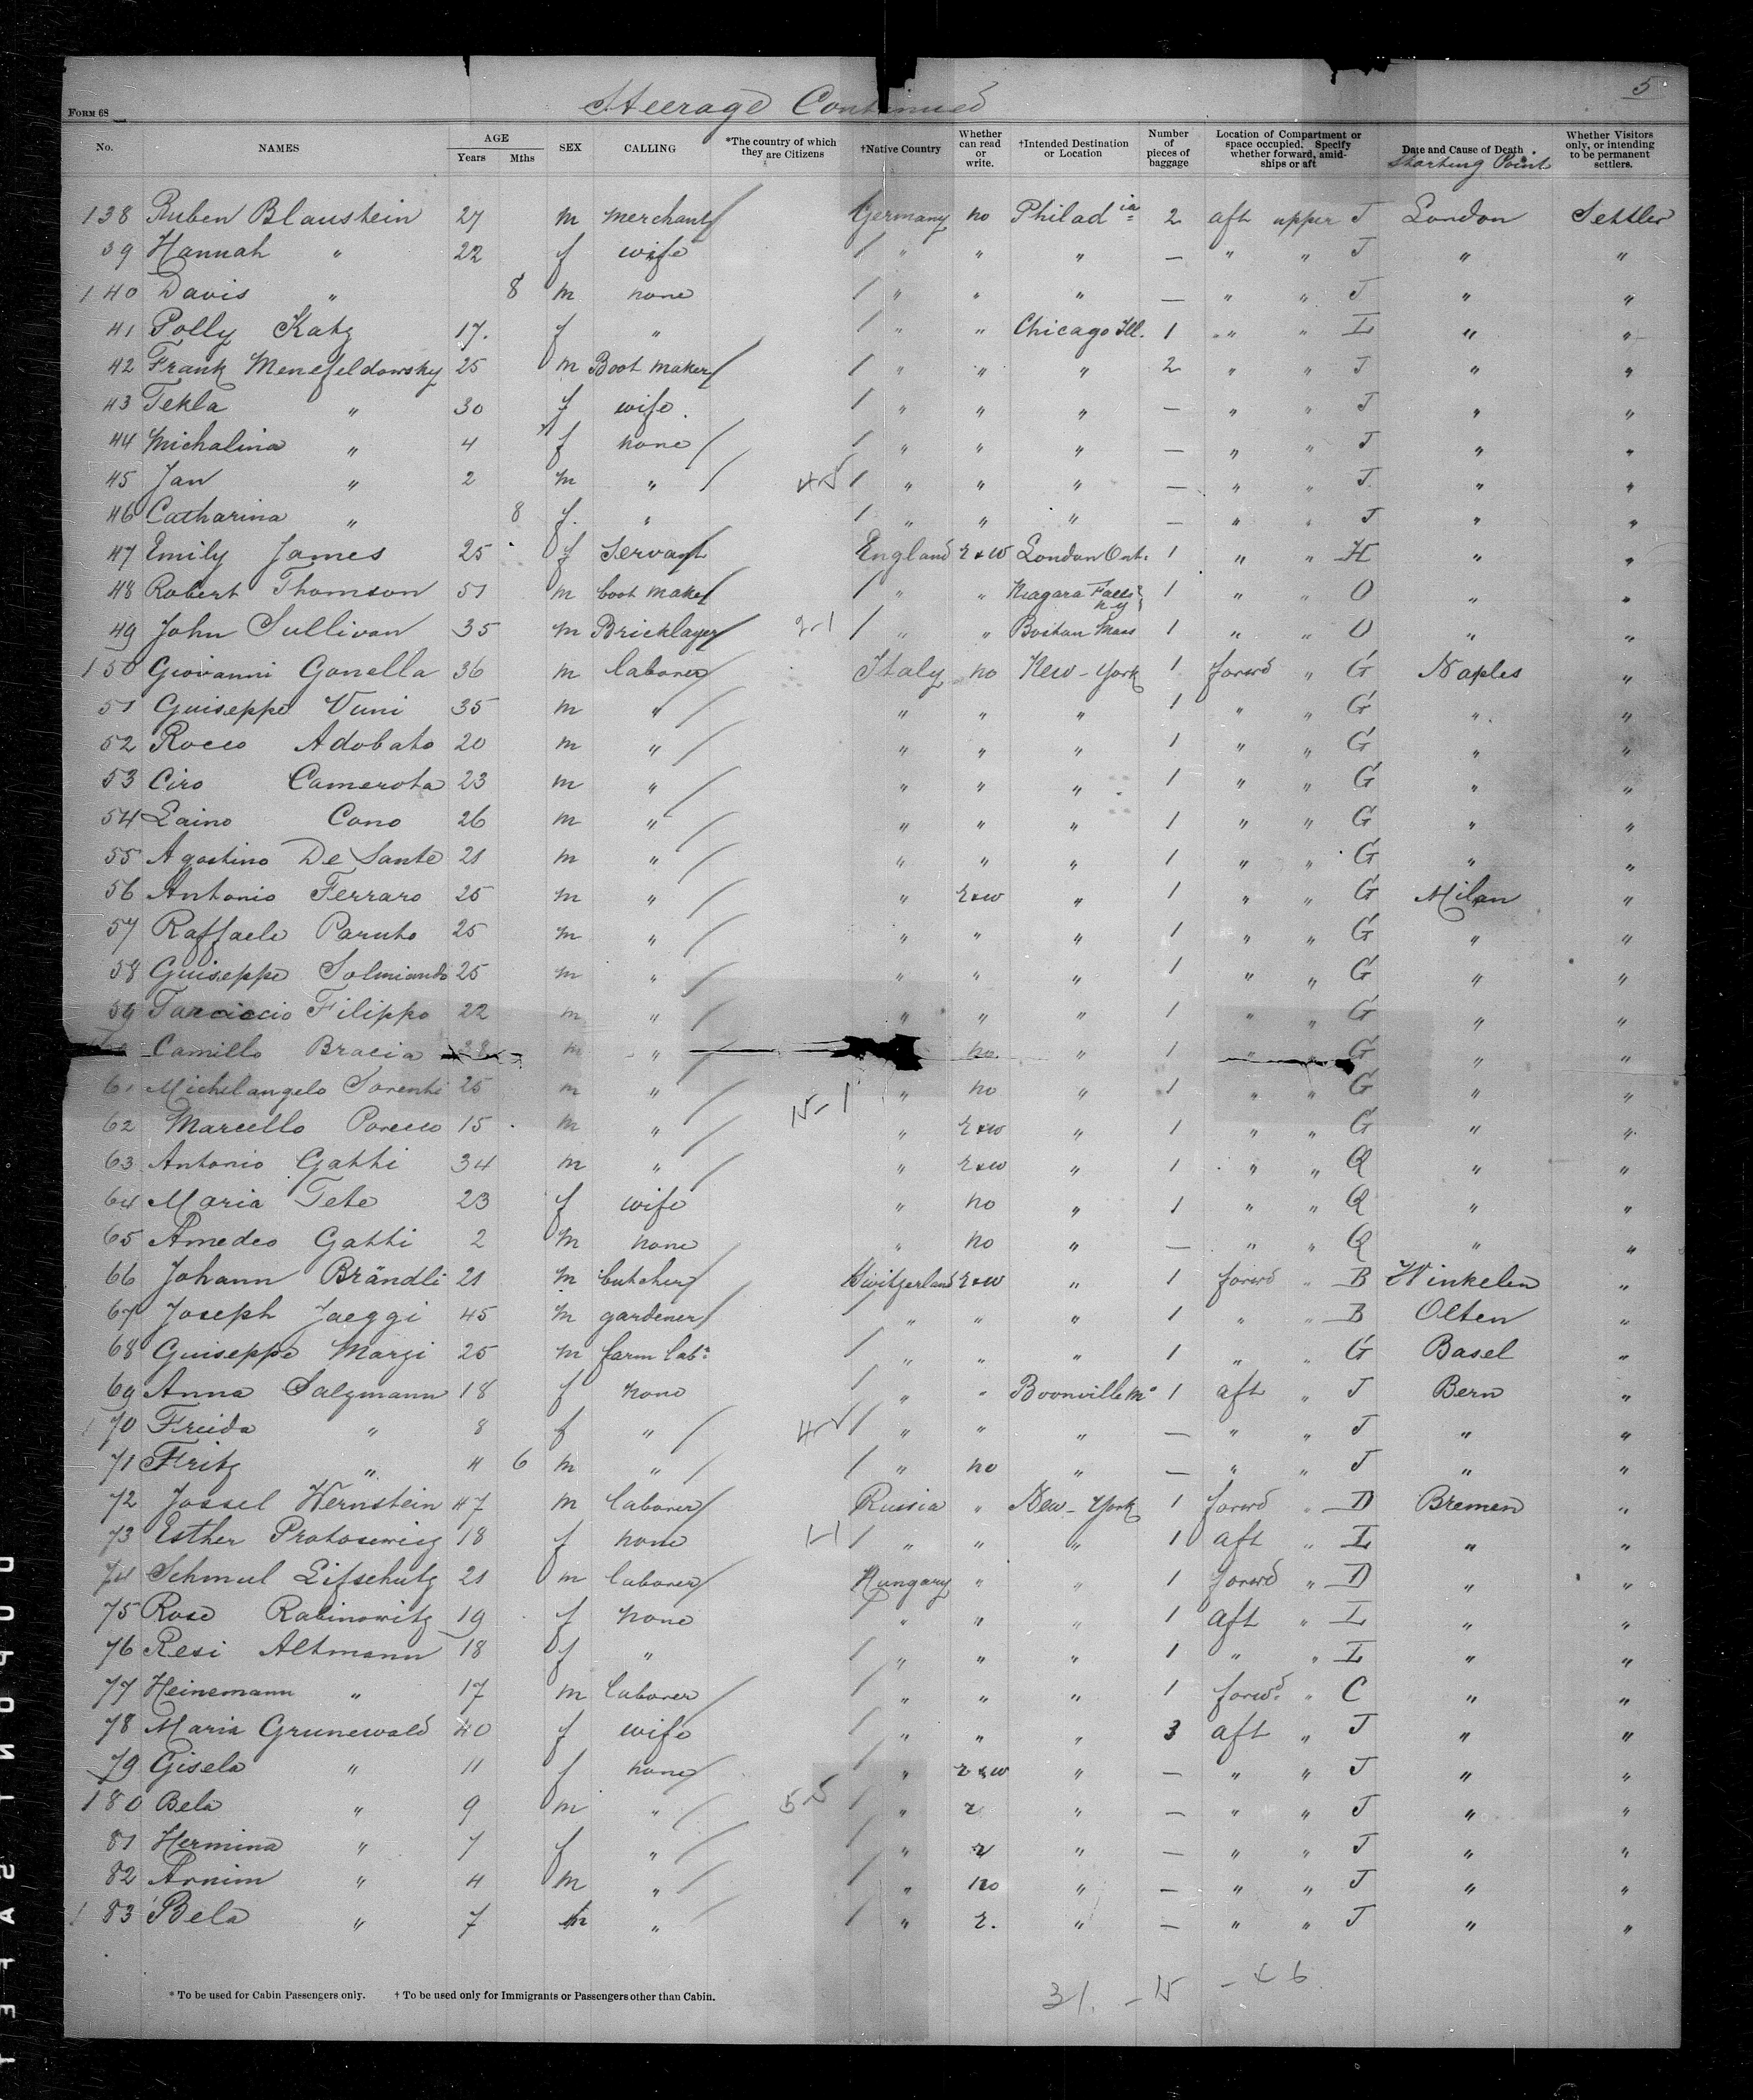 5
Steerage Continued
FORM 68
No. NAMES AGE Years Mths SEX CALLING *The country of which they are Citizens †Native Country Whether can read or write. †Intended Destination or Location Number of pieces of baggage Location of Compartment or space occupied. Specify whether forward, amidships or aft Date and Cause of Death Starting Point Whether Visitors only, or intending to be permanent settlers.
138 Ruben Blaustein 27 m merchant Germany no Philad ia 2 aft upper J London Settler
39 Hannah " 22 f wife " " " — " " J " "
140 Davis " 8 m none " " " — " " J " "
41 Polly Katz 17. f " " " Chicago Ill. 1 " " I " "
42 Frank Menefeldowsky 25 m Boot maker " " " 2 " " J " "
43 Tekla " 30 f wife. " " " — " " J " "
44 Michalina " 4 f none " " " — " " J " "
45 Jan " 2 m " " " " — " " J " "
46 Catharina " 8 f. " " " " — " " J " "
47 Emily James 25 f Servant England r & w London Ont. 1 " " H " "
48 Robert Thomson 51 m boot maker " " Niagara Falls N.Y 1 " " O " "
49 John Sullivan 35 m Bricklayer 2-1 " " Boston Mass 1 " " O " "
150 Giovanni Gonella 36 m laborer Italy no New-York 1 forwd " G Naples "
51 Guiseppe Vuni 35 m " " " " 1 " " G " "
52 Rocco Adobato 20 m " " " " 1 " " G " "
53 Ciro Camerota 23 m " " " " 1 " " G " "
54 Laino Cono 26 m " " " " 1 " " G " "
55 Agostino De Sante 21 m " " " " 1 " " G " "
56 Antonio Ferraro 25 m " " r & w " 1 " " G Milan "
57 Raffaele Paruto 25 m " " " " 1 " " G " "
58 Guiseppe Solmiando 25 m " " " " 1 " " G " "
59 Filippo 22 m " " " " 1 " " G " "
Camillo Bracia m " no. " 1 " " G " "
61 Michelangelo Sorenti 25 m " 15-1 " no " 1 " " G " "
62 Marcello Porcco 15 m " " r & w " 1 " " G " "
63 Antonio Gatti 34 m " " r & w " 1 " " Q " "
64 Maria Tete 23 f wife " no " 1 " " Q " "
65 Amedeo Gatti 2 m none " no " — " " Q " "
66 Johann Brändli 21 m butcher Switzerland r & w " 1 forwd " B Winkelen "
67 Joseph Jaeggi 45 m gardener " " " 1 " " B Olten "
68 Guiseppe Margi 25 m farm labr " " " 1 " " G Basel "
69 Anna Salzmann 18 f none " " Boonville Mo 1 aft " J Bern "
170 Freida " 8 f " " " " — " " J " "
71 Fritz " " 6 m " " no " — " " J " "
72 Jossel Wernstein 47 m laborer Russia " New-York 1 forwd " D Bremen "
73 Esther Protosewicz 18 f none 1-1 " " " 1 aft " I " "
74 Schmul Lifschutz 21 m laborer Hungary " " 1 forwd " D " "
75 Rose Rabinowitz 19 f none " " " 1 aft " I " "
76 Resi Altmann 18 f " " " " 1 " " I " "
77 Heinemann " 17 m laborer " " " 1 forwd " C " "
78 Maria Grunewald 40 f wife " " " 3 aft " J " "
79 Gisela " 11 f none " r & w " — " " J " "
180 Bela " 9 m " " r " — " " J " "
81 Hermina " 7 f " " r " — " " J " "
82 Armin " 4 m " " no " — " " J " "
183 Bela " 7 m " " r. " — " " J " "
* To be used for Cabin Passengers only. † To be used only for Immigrants or Passengers other than Cabin.
31. - 15